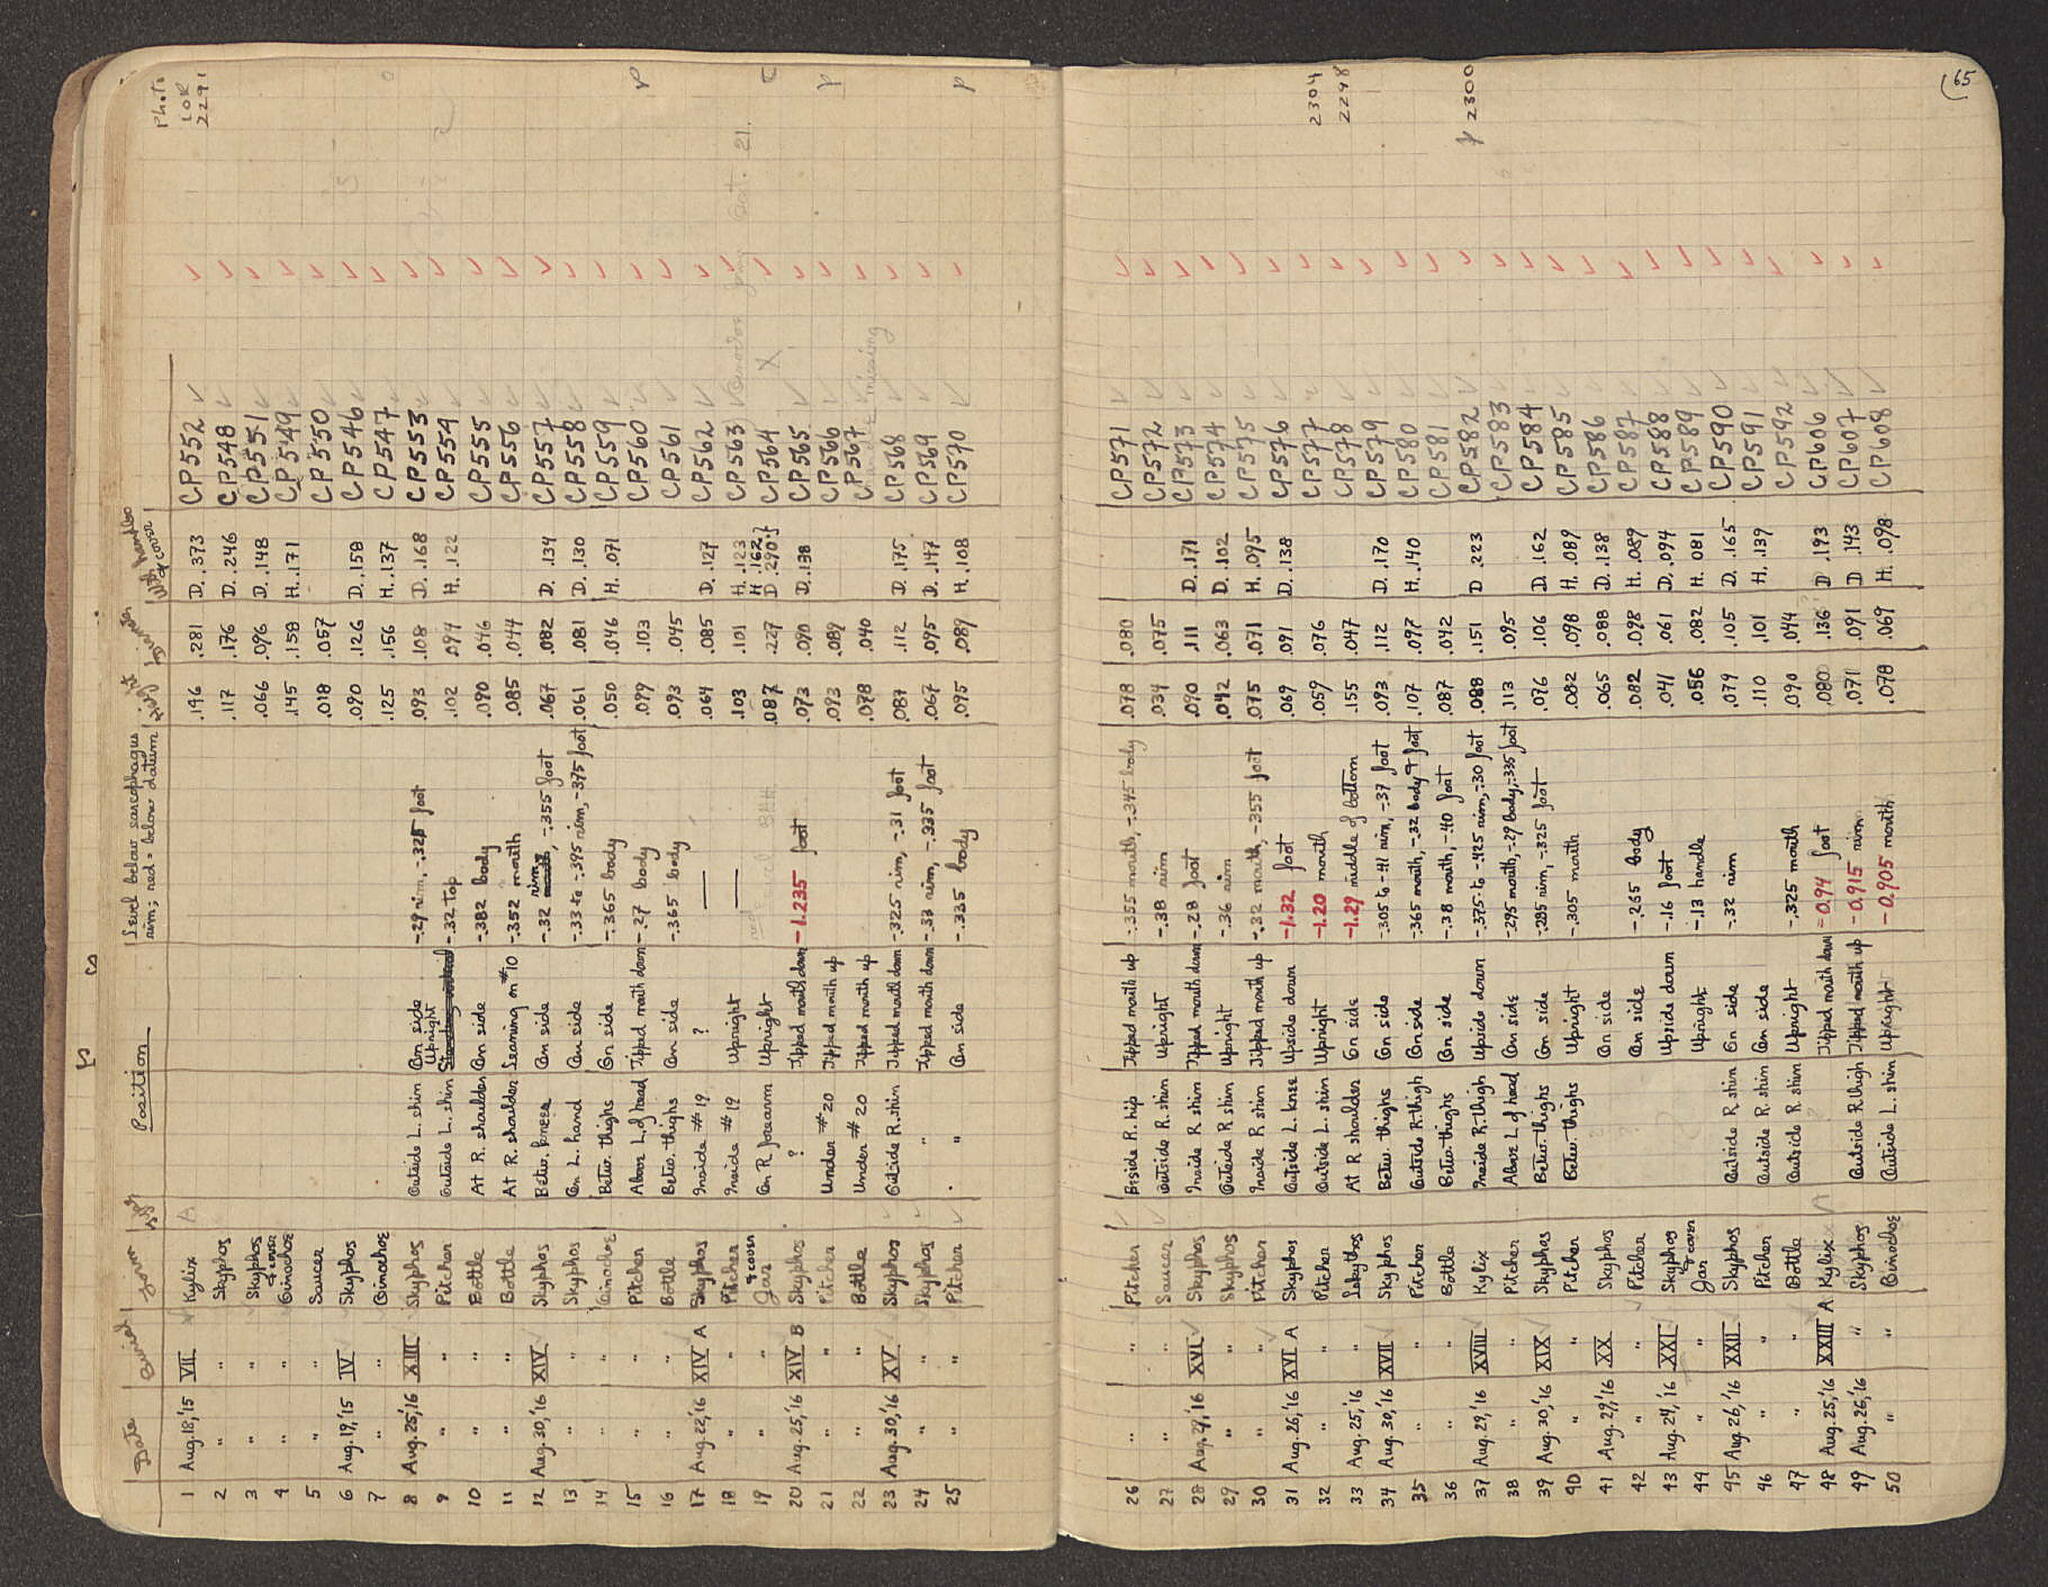 Position
Date Burial Form Level below sarcophagus rim; red = below datum Height Diameter With handles or cover Photo
1 Aug. 18,'15 VII Kylix .146 .281 D. .373 CP552 LOR 2291
2 " " Skyphos .117 .176 D. .246 CP548
3 " " Skyphos & cover .066 .096 D. .148 CP551
4 " " Oinochoe .145 .158 H. .171 CP549
5 " " Saucer .018 .057 CP550
6 Aug. 19,'15 IV Skyphos .090 .126 D. .158 CP546
7 " " Oinochoe .125 .156 H. .137 CP547
8 Aug. 25,'16 XIII Skyphos Outside L. shin On side -.29 rim, -.325 foot .093 .108 D. .168 CP553
9 " " Pitcher Outside L. shin Upright -.32 top .102 .094 H. .122 CP554
10 " " Bottle At R. shoulder On side -.382 body .090 .046 CP555
11 " " Bottle At R. shoulder Leaning on #10 -.352 mouth .085 .044 CP556
12 Aug. 30,'16 XIV Skyphos Betw. knees On side -.32 rim, -.355 foot .067 .082 D. .134 CP557
13 " " Skyphos On L. hand On side -.33 to -.395 rim, -.375 foot .061 .081 D. .130 CP558
14 " " Oinochoe Betw. thighs On side -.365 body .050 .046 H. .071 CP559
15 " " Pitcher Above L. of head Tipped mouth down -.27 body .099 .103 CP560 P
16 " " Bottle Betw. thighs On side -.365 body .093 .045 CP561
17 Aug. 22,'16 XIV A Skyphos Inside #19 ? — .064 .085 D. .127 CP562
18 " " Pitcher Inside #19 Upright — .103 .101 H. .123 CP563
19 " " Jar & cover On R. forearm Upright .087 .227 H. .162 D. .290 CP564
20 Aug. 25,'16 XIV B Skyphos ? Tipped mouth down -1.235 foot .073 .090 D. .138 CP565
21 " " Pitcher Under #20 Tipped mouth up .093 .089 CP566 P
22 " " Bottle Under #20 Tipped mouth up .078 .040 CP567 missing
23 Aug. 30,'16 XV Skyphos Outside R. shin Tipped mouth down -.325 rim, -.31 foot .087 .112 D. .175 CP568
24 " " Skyphos " Tipped mouth down -.33 rim, -.335 foot .067 .095 D. .147 CP569
25 " " Pitcher " On side -.335 body .095 .089 H. .108 CP570 P
65
26 " " Pitcher Beside R. hip Tipped mouth up -.355 mouth, -.345 body .078 .080 CP571
27 " " Saucer Outside R. shin Upright -.38 rim .034 .075 CP572
28 Aug. 27,'16 XVI Skyphos Inside R. shin Tipped mouth down -.28 foot .090 .111 D. .171 CP573
29 " " Skyphos Outside R. shin Upright -.36 rim .042 .063 D. .102 CP574
30 " " Pitcher Inside R. shin Tipped mouth up -.32 mouth, -.355 foot .075 .071 H. .095 CP575
31 Aug. 26,'16 XVI A Skyphos Outside L. knee Upside down -1.32 foot .069 .091 D. .138 CP576
32 " " Pitcher Outside L. shin Upright -1.20 mouth .059 .076 CP577 2304
33 Aug. 25,'16 " Lekythos At R. shoulder On side -1.29 middle of bottom .155 .047 CP578 2298
34 Aug. 30,'16 XVII Skyphos Betw. thighs On side -.305 to -.41 rim, -.37 foot .093 .112 D. .170 CP579
35 " " Pitcher Outside R. thigh On side -.365 mouth, -.32 body & foot .107 .097 H. .140 CP580
36 " " Bottle Betw. thighs On side -.38 mouth, -.40 foot .087 .042 CP581
37 Aug. 29,'16 XVIII Kylix Inside R. thigh Upside down -.375 to -.425 rim, -.30 foot .088 .151 D .223 CP582 P 2300
38 " " Pitcher Above L of head On side -.295 mouth, -.29 body, -.335 foot .113 .095 CP583
39 Aug. 30,'16 XIX Skyphos Betw. thighs On side -.285 rim, -.325 foot .076 .106 D. .162 CP584
40 " " Pitcher Betw. thighs Upright -.305 mouth .082 .098 H. .089 CP585
41 Aug. 29,'16 XX Skyphos On side .065 .088 D. .138 CP586
42 " " Pitcher On side -.265 body .082 .098 H. .089 CP587
43 Aug. 24,'16 XXI Skyphos Upside down -.16 foot .041 .061 D. .094 CP588
44 " " Jar & cover Upright -.13 handle .056 .082 H. 081 CP589
45 Aug. 26,'16 XXII Skyphos Outside R. shin On side -.32 rim .079 .105 D. .165 CP590
46 " " Pitcher Outside R. shin On side .110 .101 H. .139 CP591
47 " " Bottle Outside R. shin Upright -.325 mouth .090 .044 CP592
48 Aug. 25,'16 XXIII A Kylix Tipped mouth down -0.94 foot .080 .136 D .193 CP606
49 Aug. 26,'16 " Skyphos Outside R. thigh Tipped mouth up -0.915 rim .071 .091 D .143 CP607
50 " " Oinochoe Outside L. shin Upright -0.905 mouth .078 .069 H. .098 CP608